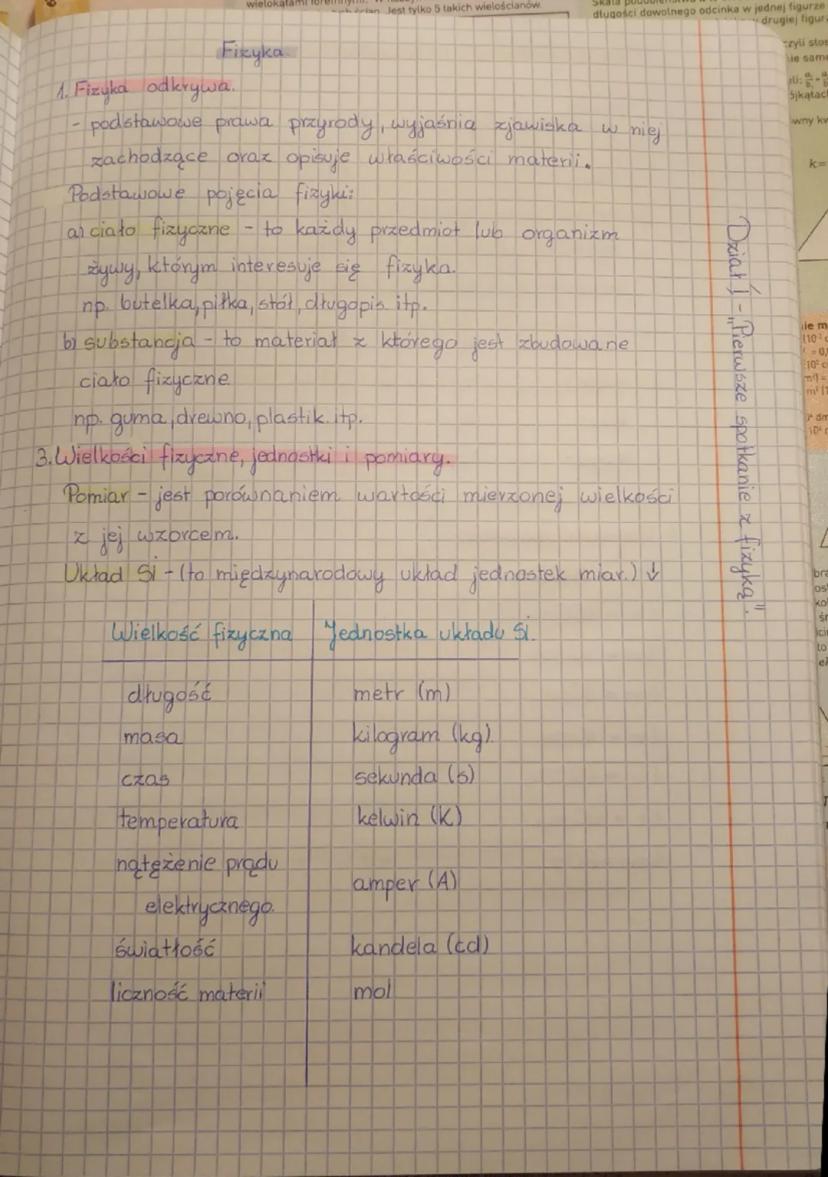 wielokątami foremnymi.
Jest tylko 5 takich wielościanów.
długości dowolnego odcinka w jednej figurze
drugiej figur
Fizyka
1. Fizyka odkrywa.
- podstawowe prawa przyrody, wyjaśnia zjawiska w niej
zachodzące oraz opisuje właściwości materii.
Podstawowe pojęcia fizyki:
a) ciało fizyczne - to każdy przedmiot lub organizm
żywy, którym interesuje się fizyka.
np. butelka, piłka, stół, długopis itp.
b) substancja - to materiał z którego jest zbudowane
ciało fizyczne
np. guma, drewno, plastik itp.
3. Wielkości fizyczne, jednostki i pomiary.
Pomiar - jest porównaniem wartości mierzonej wielkości
z jej wzorcem.
Układ Si - (to międzynarodowy układ jednostek miar.) ↓
Wielkość fizyczna Jednostka układu Si.
długość metr (m)
masa kilogram (kg)
czas sekunda (s)
temperatura kelwin (K)
natężenie prądu
elektrycznego amper (A)
światłość kandela (cd)
liczność materii mol
Dział 1 - „Pierwsze spotkanie z fizyką".
k=